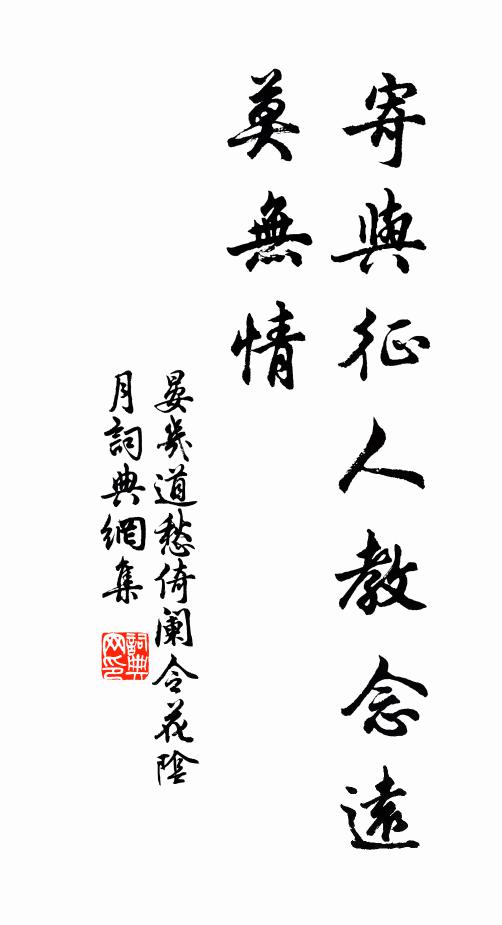 寄與征人教念遠
莫無情
晏幾道愁倚闌令花陰
月詞典網集
詞典网印